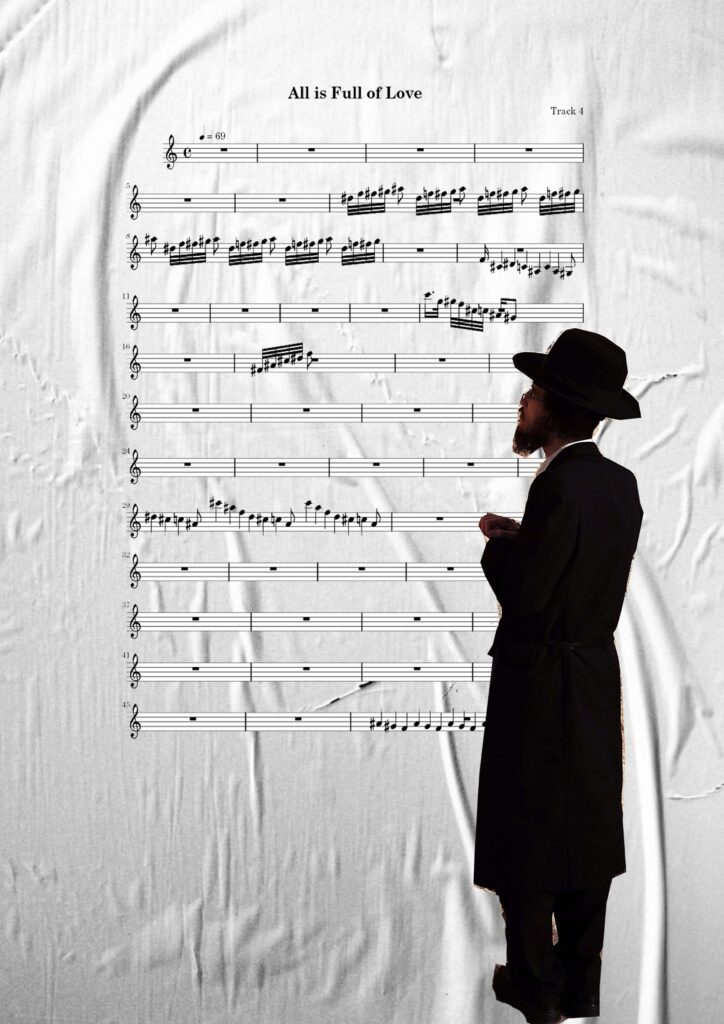 All is Full of Love
Track 4
= 69
5
8
11
16
20
24
29
32
37
41
45